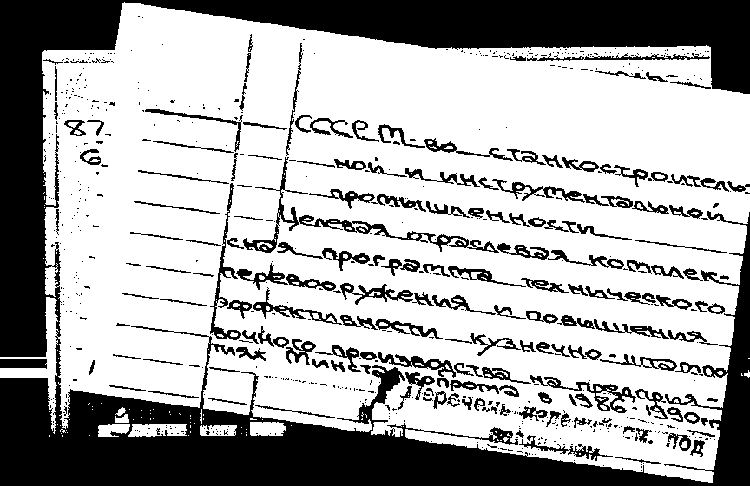 87
6
СССР. М-во станкостроитель-
ной и инструментальной
промышленности.
Целевая отраслевая комплек-
сная программа технического
перевооружения и повышения
эффективности кузнечно-штампо
вочного производства на предприя-
тиях Минстанкопрома в 1986-1990гг
Перечень см. под